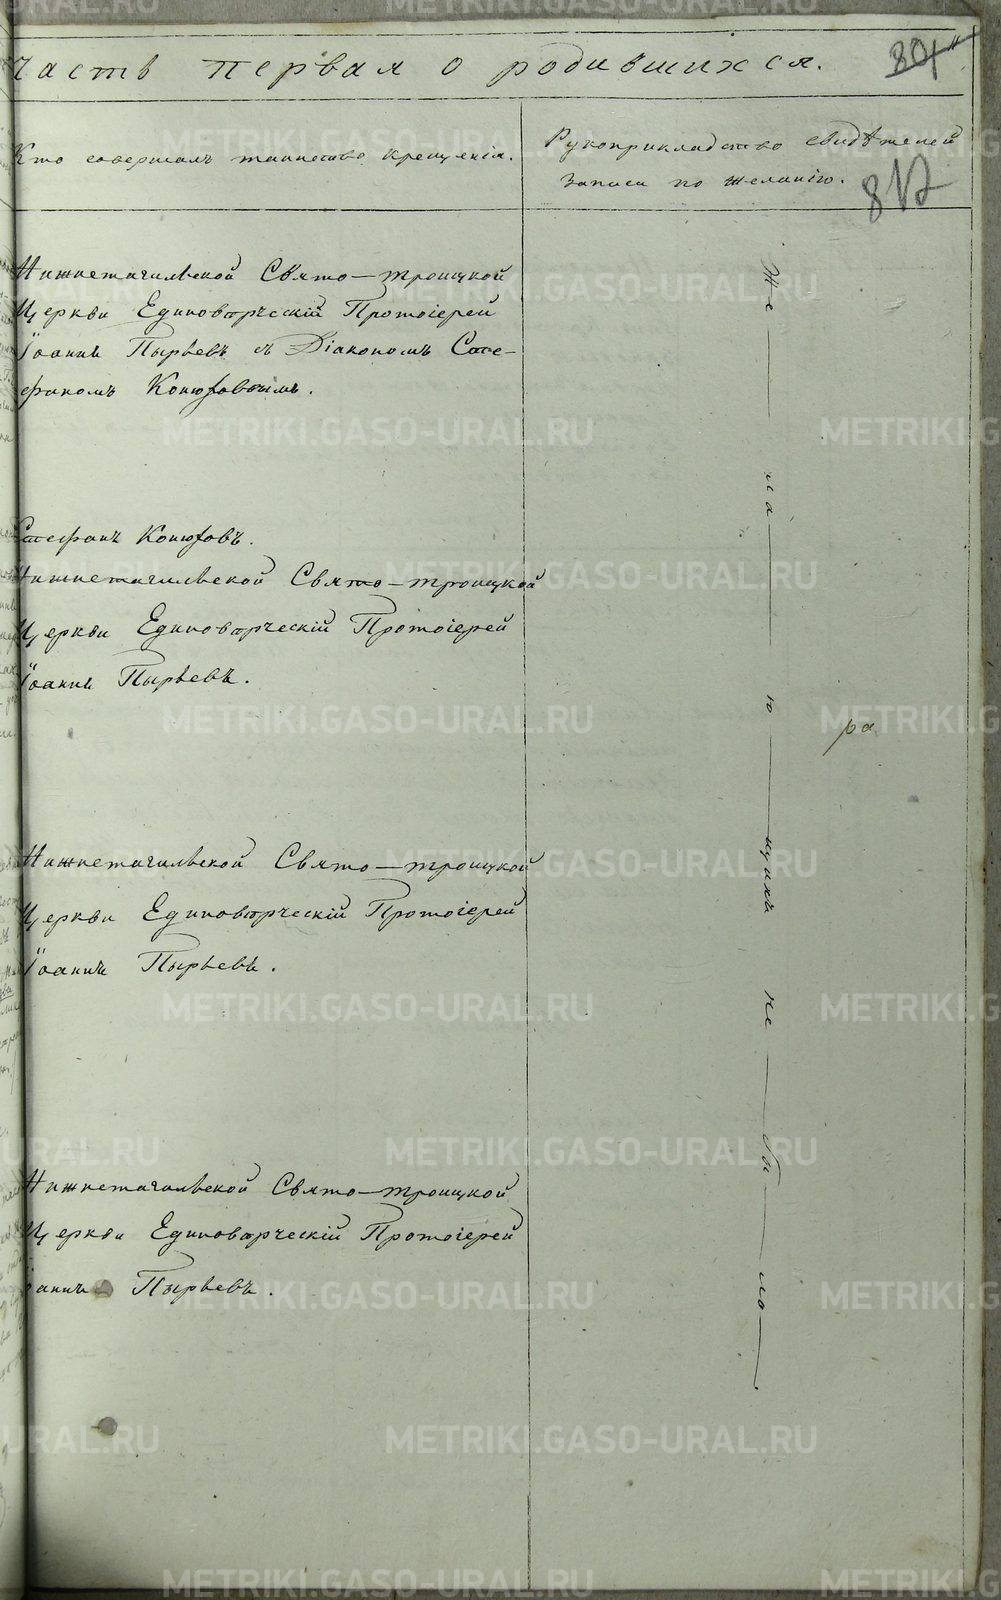 Часть первая о родившихся.
801
Кто совершалъ таинство крещенія.
Рукоприкладство свидѣтелей
записи по желанію.
812
Нижнетагильской Свято-троицкой
Церкви Единовѣрческій Протоіерей
Іоаннъ Пырьевъ съ Діакономъ Сте-
фаномъ Конюховымъ.
Стефанъ Конюховъ.
Нижнетагильской Свято-троицкой
Церкви Единовѣрческій Протоіерей
Іоаннъ Пырьевъ.
Нижнетагильской Свято-троицкой
Церкви Единовѣрческій Протоіерей
Іоаннъ Пырьевъ.
Нижнетагильской Свято-троицкой
Церкви Единовѣрческій Протоіерей
Іоаннъ Пырьевъ.
Же — ла — ю — щихъ не — бы — ло
ра
METRIKI.GASO-URAL.RU